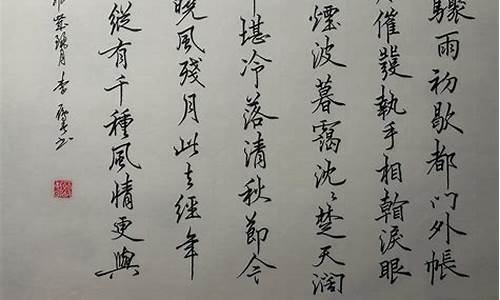 驟雨初歇都門外帳
催發執手相翰淚眼
煙波暮靄沈〻楚天闊
堪冷落清秋節今
曉風殘月此去經年
縱有千種風情更與